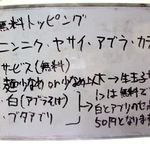 無料トッピング
ニンニク・ヤサイ・アブラ・カラ
サービス(無料)
麺少なめ or 少なめ以下→生玉子
・白(アブラそば)
・ブタアブリ
1つは無料で
白とアブリのセ
50円となりま